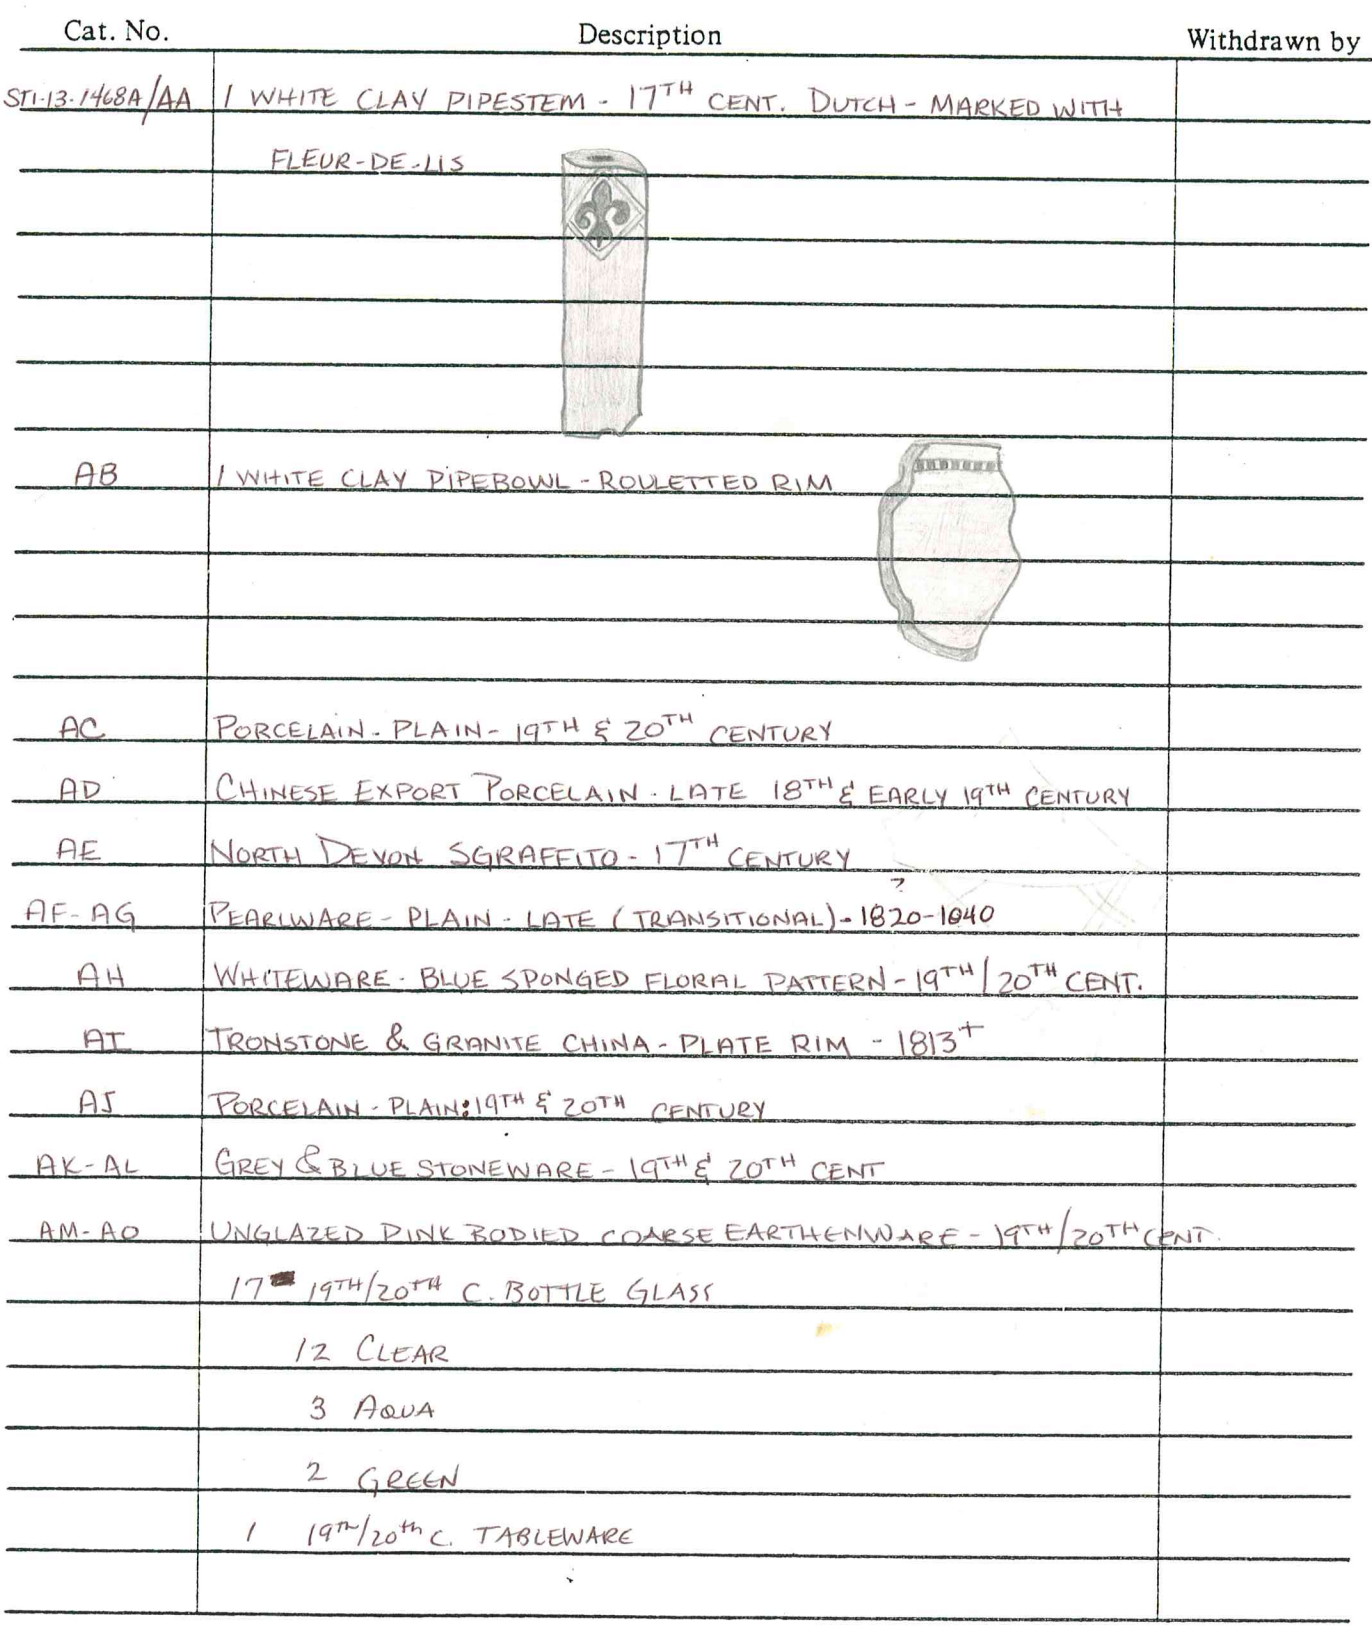 Cat. No. Description Withdrawn by
ST1-13-1468A/AA 1 WHITE CLAY PIPESTEM - 17TH CENT. DUTCH - MARKED WITH
FLEUR-DE-LIS
AB 1 WHITE CLAY PIPEBOWL - ROULETTED RIM
AC PORCELAIN - PLAIN - 19TH & 20TH CENTURY
AD CHINESE EXPORT PORCELAIN - LATE 18TH & EARLY 19TH CENTURY
AE NORTH DEVON SGRAFFITO - 17TH CENTURY
?
AF-AG PEARLWARE - PLAIN - LATE (TRANSITIONAL) - 1820-1840
AH WHITEWARE - BLUE SPONGED FLORAL PATTERN - 19TH/20TH CENT.
AI IRONSTONE & GRANITE CHINA - PLATE RIM - 1813+
AJ PORCELAIN - PLAIN: 19TH & 20TH CENTURY
AK-AL GREY & BLUE STONEWARE - 19TH & 20TH CENT
AM-AO UNGLAZED PINK BODIED COARSE EARTHENWARE - 19TH/20TH CENT.
17 19TH/20TH C. BOTTLE GLASS
12 CLEAR
3 AQUA
2 GREEN
1 19TH/20th C. TABLEWARE